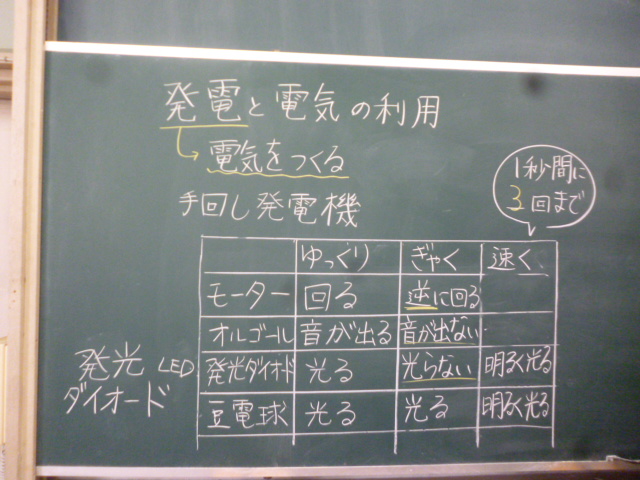 発電と電気の利用
電気をつくる
手回し発電機
1秒間に
3回まで
ゆっくり ぎゃく 速く
モーター 回る 逆に回る
オルゴール 音が出る 音が出ない
発光ダイオード 光る 光らない 明るく光る
豆電球 光る 光る 明るく光る
発光 LED
ダイオード